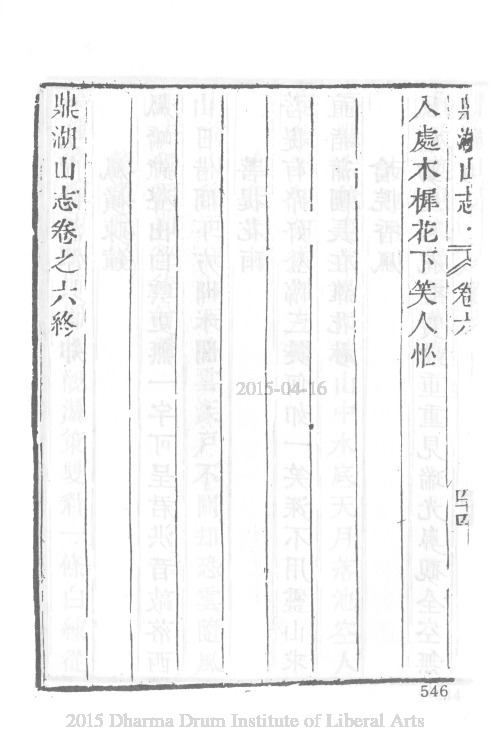 鼎湖山志
卷六
四十四
入處木樨花下笑人忙
鼎湖山志卷之六終
2015-04-16
546
2015 Dharma Drum Institute of Liberal Arts